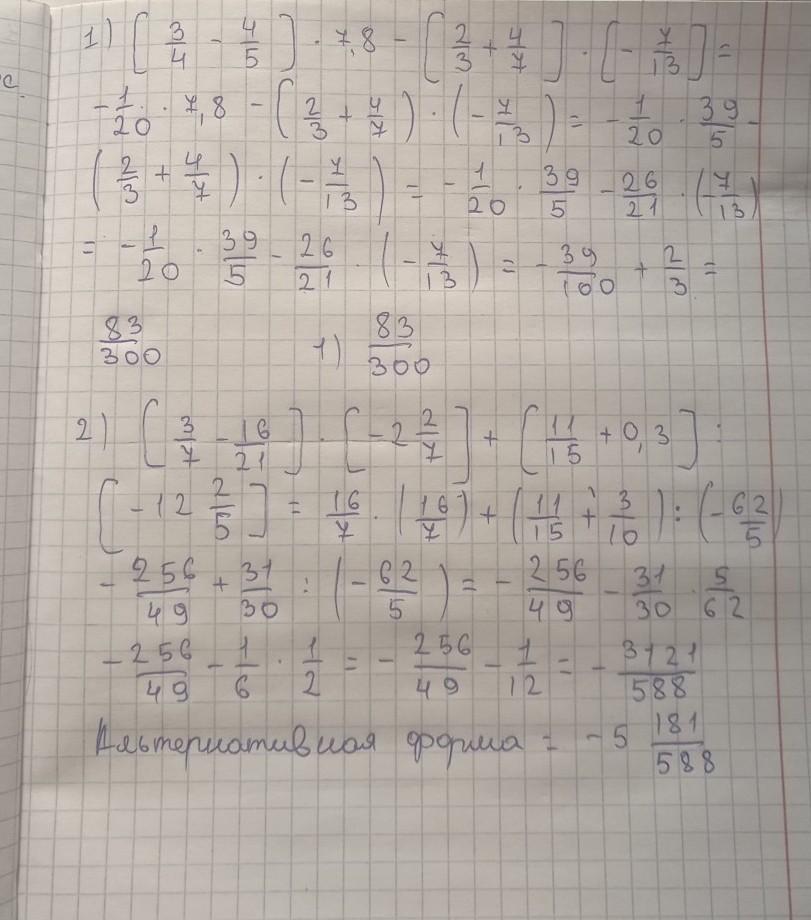 с.
1) [3/4 - 4/5] · 7,8 - [2/3 + 4/7] · [- 7/13] =
- 1/20 · 7,8 - (2/3 + 4/7) · (- 7/13) = - 1/20 · 39/5 -
(2/3 + 4/7) · (- 7/13) = - 1/20 · 39/5 - 26/21 · (- 7/13)
= - 1/20 · 39/5 - 26/21 · (- 7/13) = - 39/100 + 2/3 =
83/300 1) 83/300
2) [3/7 - 16/21] · [- 2 2/7] + [11/15 + 0,3] :
[- 12 2/5] = 16/7 · (16/7) + (11/15 + 3/10) : (- 62/5)
- 256/49 + 31/30 : (- 62/5) = - 256/49 - 31/30 · 5/62
- 256/49 - 1/6 · 1/2 = - 256/49 - 1/12 = - 3121/588
Альтернативная форма = - 5 181/588